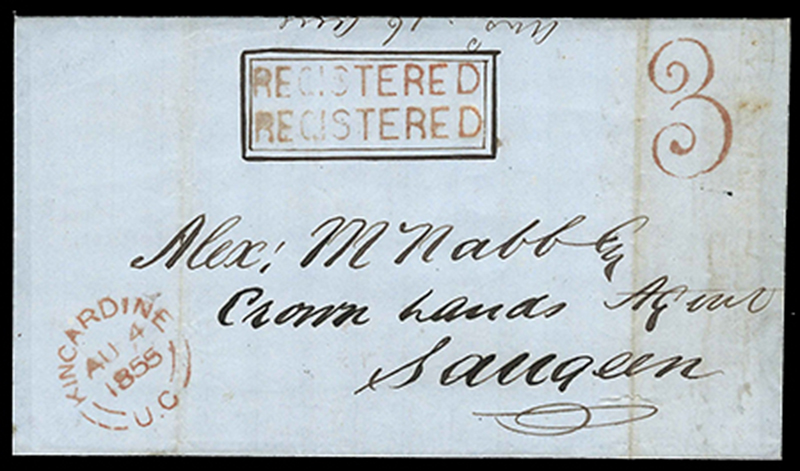 REGISTERED
REGISTERED
3
Alex: McNabb Esq
Crown Lands Agent
Saugeen
KINCARDINE
AU 4
1855
U.C